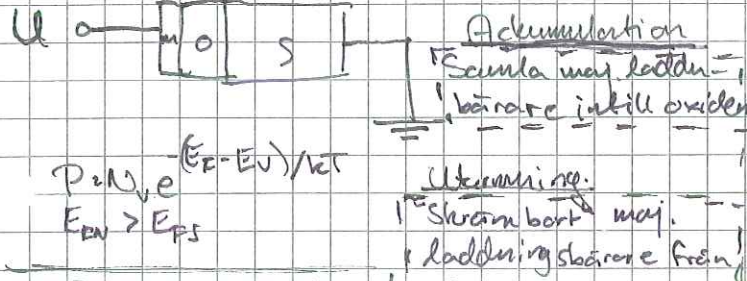 U
M O S
Ackumulation
"Samla maj. laddn-
bärare intill oxiden
p=N_v e^-(E_F-E_V)/kT
E_FM > E_FS
Utarmning.
"Skräm bort" maj.
laddningsbärare från